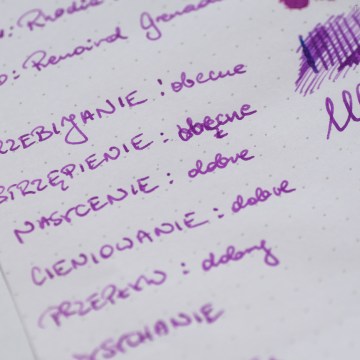 : Rhodia
: Renaird Grenad
RZEBIJANIE : obecne
STRZĘPIENIE : obecne
NASYCENIE : dobre
CIENIOWANIE : dobre
PRZEPŁYW : dobry
YSYCHANIE